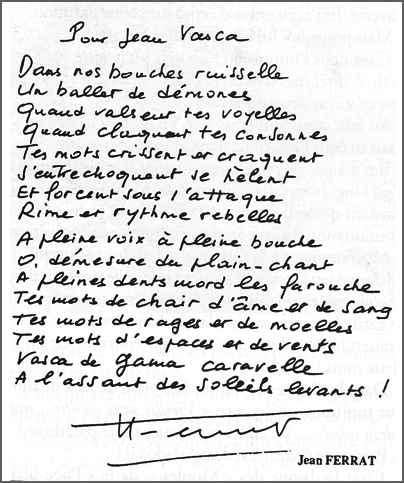 Pour Jean Vasca
Dans nos bouches ruisselle
Un ballet de démones
Quand valseur tes voyelles
Quand claquent tes consonnes
Tes mots crissent et craquent
S'entrechoquent se hèlent
Et forcent sous l'attaque
Rime et rythme rebelles
A pleine voix à pleine bouche
O, démesure du plain-chant
A pleines dents mord les farouche
Tes mots de chair d'âme et de sang
Tes mots de rages et de moelles
Tes mots d'espaces et de vents
Vasca de Gama caravelle
A l'assaut des soleils levants !
Jean FERRAT